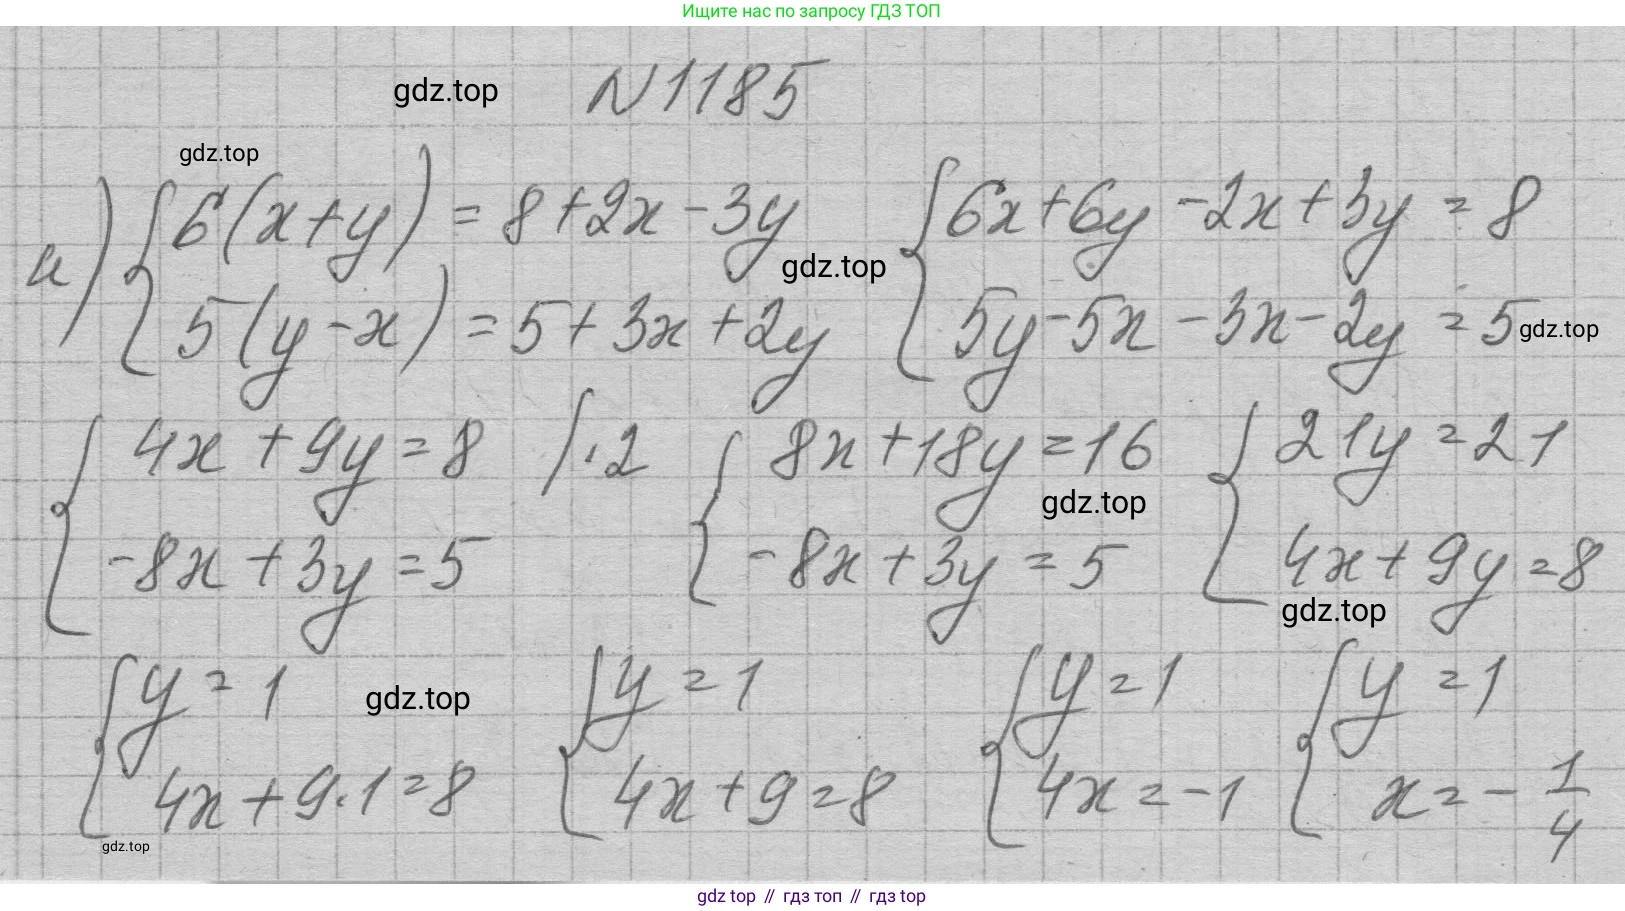 Ищите нас по запросу ГДЗ ТОП
gdz.top
N 1185
gdz.top
а) { 6(x+y) = 8+2x-3y
5(y-x) = 5+3x+2y
gdz.top
{ 6x+6y-2x+3y = 8
5y-5x-3x-2y = 5
gdz.top
{ 4x+9y=8 /·2
-8x+3y=5
{ 8x+18y=16
gdz.top
-8x+3y=5
{ 21y=21
4x+9y=8
gdz.top
{ y=1
gdz.top
4x+9·1=8
gdz.top
{ y=1
4x+9=8
{ y=1
4x=-1
{ y=1
x=-1/4
gdz top // гдз топ // гдз top